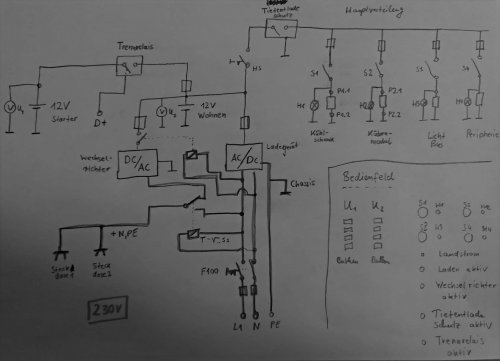 Tiefentlade
schutz
Hauptverteilung
Trennrelais
HS
S1
S2
S3
S4
P1.1
P2.1
U1
12V
Starter
D+
U2
12V
Wohnen
H1
H2
H3
H4
P1.2
P2.2
Kühl-
schrank
Licht
Bus
Peripherie
Ladegerät
Wechsel-
richter
DC/
AC
AC/
DC
Chassis
+N,PE
Steck
dose 1
Steck
dose 2
F100
L1 N PE
230V
Bedienfeld
U1 U2
Balken Balken
S1 H1 S3 H3
S2 S4 H4
Landstrom
Laden aktiv
Wechselrichter
aktiv
Tiefentlade
Schutz aktiv
Trennrelais
aktiv